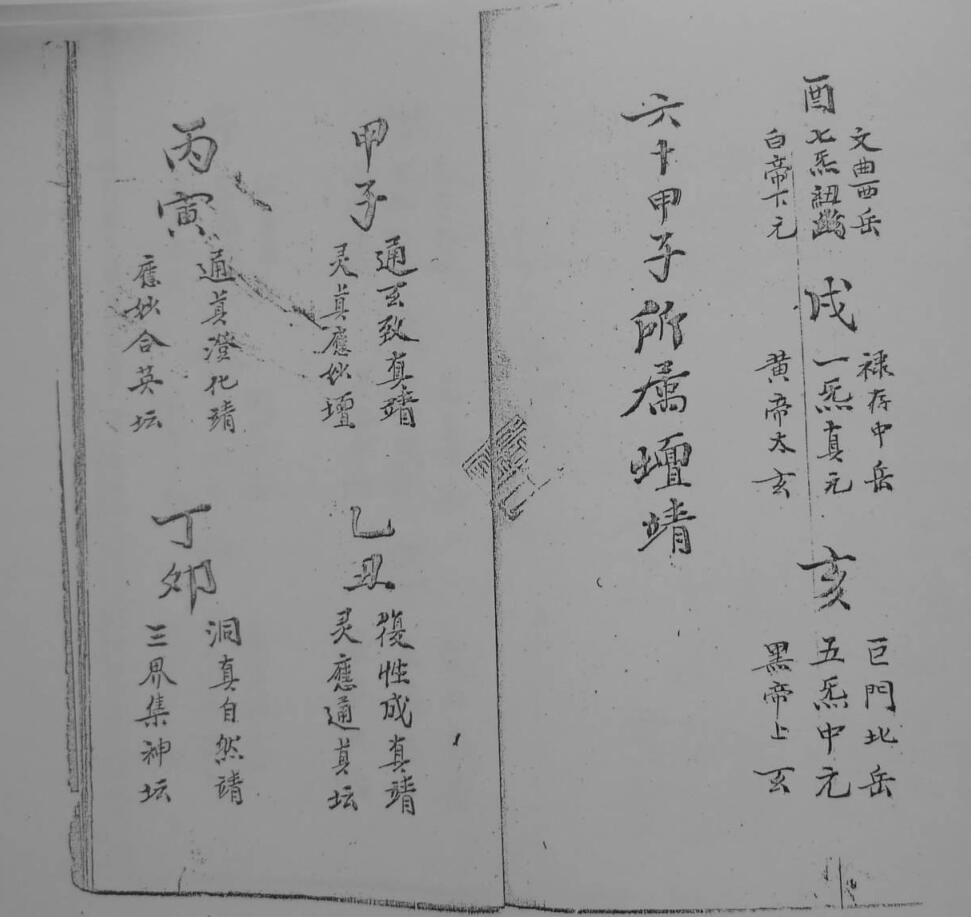 酉
文曲西岳
七炁紐幽
白帝下元
戌
禄存中岳
一炁真元
黄帝太玄
亥
巨門北岳
五炁中元
黑帝上玄
六十甲子所属壇靖
甲子
通玄致真靖
灵真應妙壇
乙丑
復性成真靖
灵應通真坛
丙寅
通真澄化靖
應妙合英坛
丁卯
洞真自然靖
三界集神坛